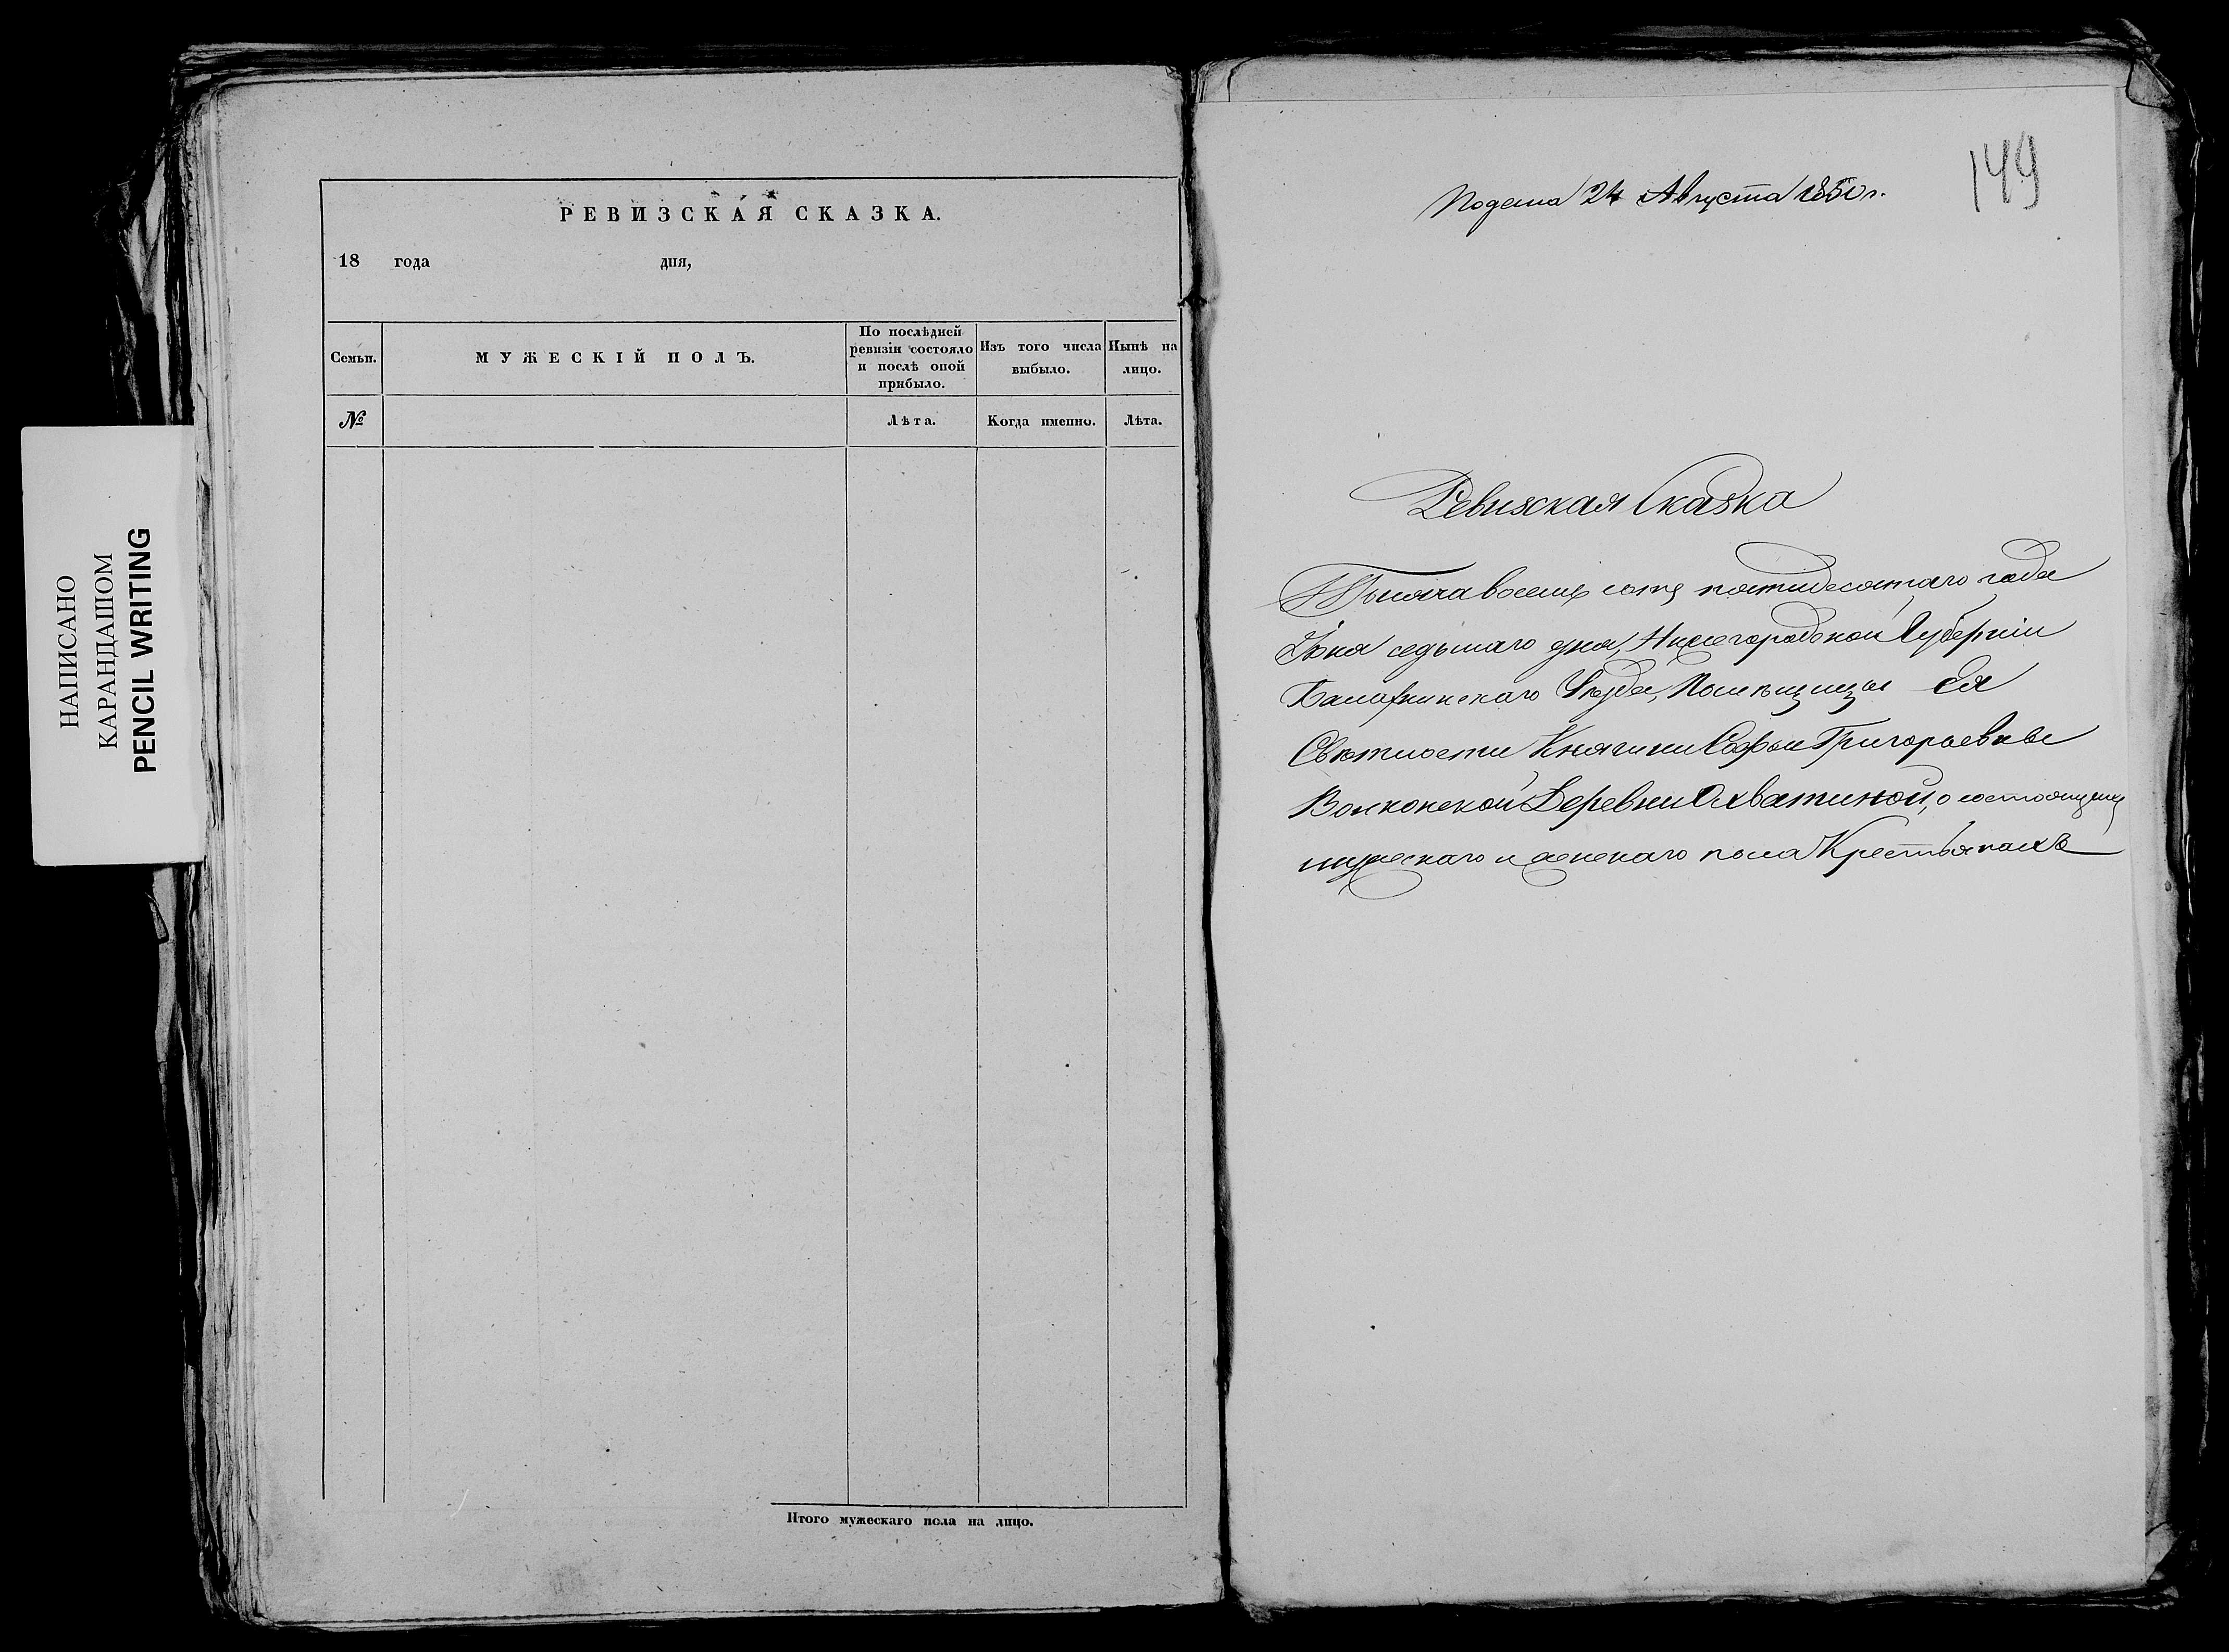 НАПИСАНО
КАРАНДАШОМ
PENCIL WRITING
РЕВИЗСКАЯ СКАЗКА.
18 года дня,
Семьи.
МУЖЕСКІЙ ПОЛЪ.
По послѣдней
ревизіи состояло
и послѣ оной
прибыло.
Изъ того числа
выбыло.
Нынѣ на
лицо.
№
Лѣта.
Когда именно.
Лѣта.
Итого мужескаго пола на лицо.
149
Подана 24 Августа 1850 г.
Ревизская Сказка
Тысяча восемь сотъ пятидесятаго года
Іюня седьмаго дня, Нижегородской Губерніи
Балахнинскаго Уѣзда, Помѣщицы Ея
Свѣтлости Княгини Софьи Григорьевны
Волконской Деревни Охватиной, о состоящихъ
мужескаго и женскаго пола Крестьянахъ